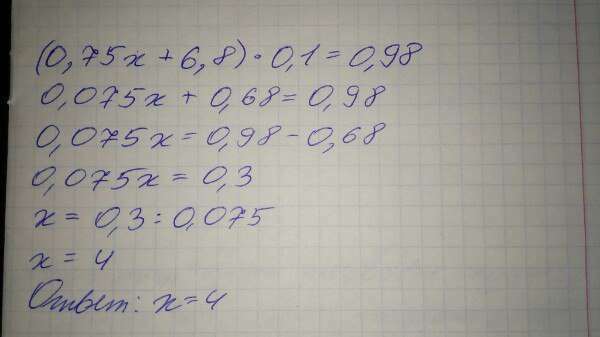 (0,75x + 6,8) · 0,1 = 0,98
0,075x + 0,68 = 0,98
0,075x = 0,98 - 0,68
0,075x = 0,3
x = 0,3 : 0,075
x = 4
Ответ: x = 4